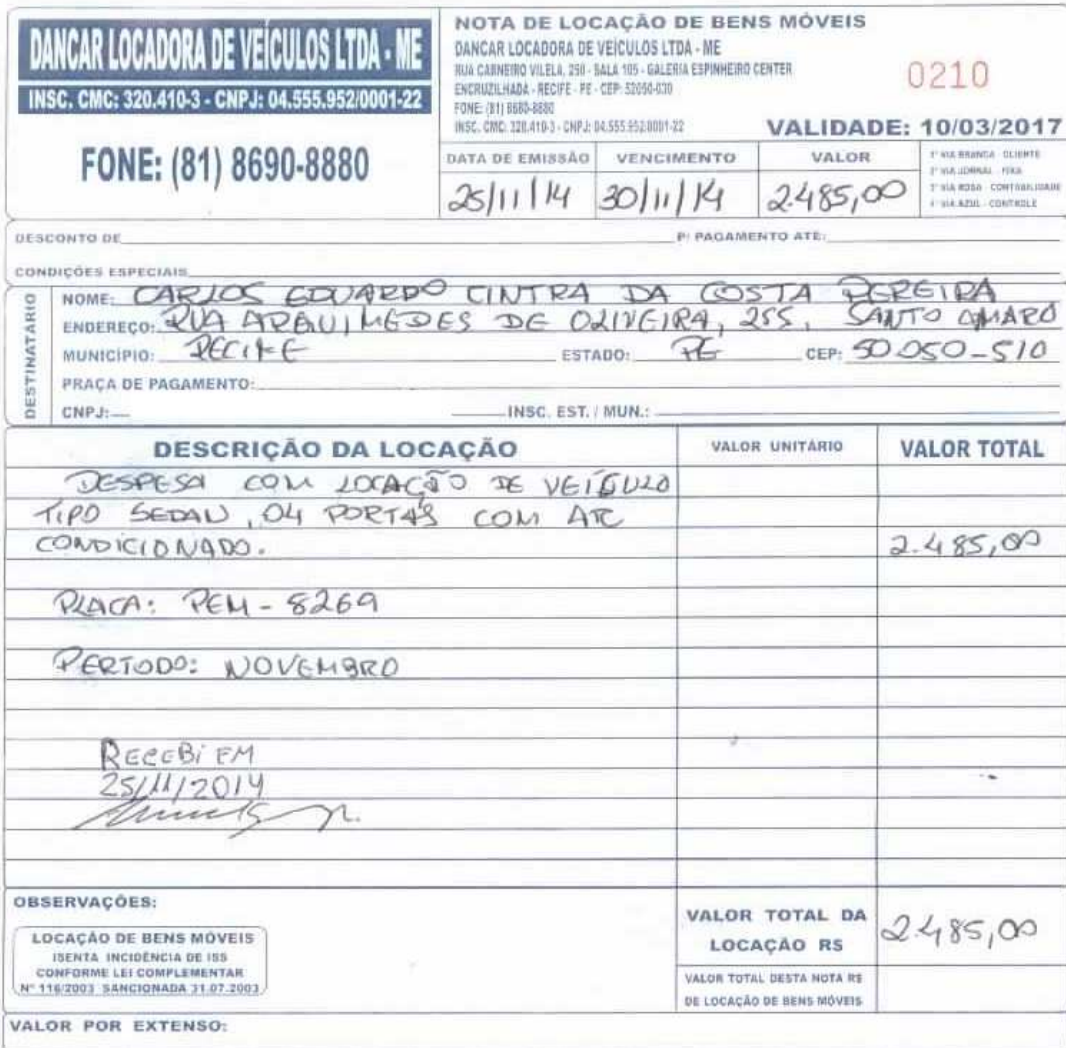 DANCAR LOCADORA DE VEÍCULOS LTDA - ME
INSC. CMC: 320.410-3 - CNPJ: 04.555.952/0001-22
FONE: (81) 8690-8880
NOTA DE LOCAÇÃO DE BENS MÓVEIS
DANCAR LOCADORA DE VEÍCULOS LTDA - ME
RUA CARNEIRO VILELA, 250 - SALA 105 - GALERIA ESPINHEIRO CENTER
ENCRUZILHADA - RECIFE - PE - CEP: 52050-030
FONE: (81) 8680-8880
INSC. CMC: 320.410-3 - CNPJ: 04.555.952/0001-22
0210
VALIDADE: 10/03/2017
DATA DE EMISSÃO VENCIMENTO VALOR
25/11/14 30/11/14 2.485,00
1ª VIA BRANCA - CLIENTE
2ª VIA JORNAL - FIXA
3ª VIA ROSA - CONTABILIDADE
4ª VIA AZUL - CONTROLE
DESCONTO DE P/ PAGAMENTO ATÉ:
CONDIÇÕES ESPECIAIS
DESTINATÁRIO
NOME: CARLOS EDUARDO CINTRA DA COSTA PEREIRA
ENDEREÇO: RUA ARQUIMEDES DE OLIVEIRA, 255, SANTO AMARO
MUNICÍPIO: RECIFE ESTADO: PE CEP: 50.050-510
PRAÇA DE PAGAMENTO:
CNPJ: INSC. EST. / MUN.:
DESCRIÇÃO DA LOCAÇÃO VALOR UNITÁRIO VALOR TOTAL
DESPESA COM LOCAÇÃO DE VEÍCULO
TIPO SEDAN, 04 PORTAS COM AR
CONDICIONADO. 2.485,00
PLACA: PEM - 8269
PERÍODO: NOVEMBRO
RECEBI EM
25/11/2014
OBSERVAÇÕES:
LOCAÇÃO DE BENS MÓVEIS
ISENTA INCIDÊNCIA DE ISS
CONFORME LEI COMPLEMENTAR
Nº 116/2003 SANCIONADA 31.07.2003
VALOR TOTAL DA
LOCAÇÃO RS 2.485,00
VALOR TOTAL DESTA NOTA RS
DE LOCAÇÃO DE BENS MÓVEIS
VALOR POR EXTENSO: